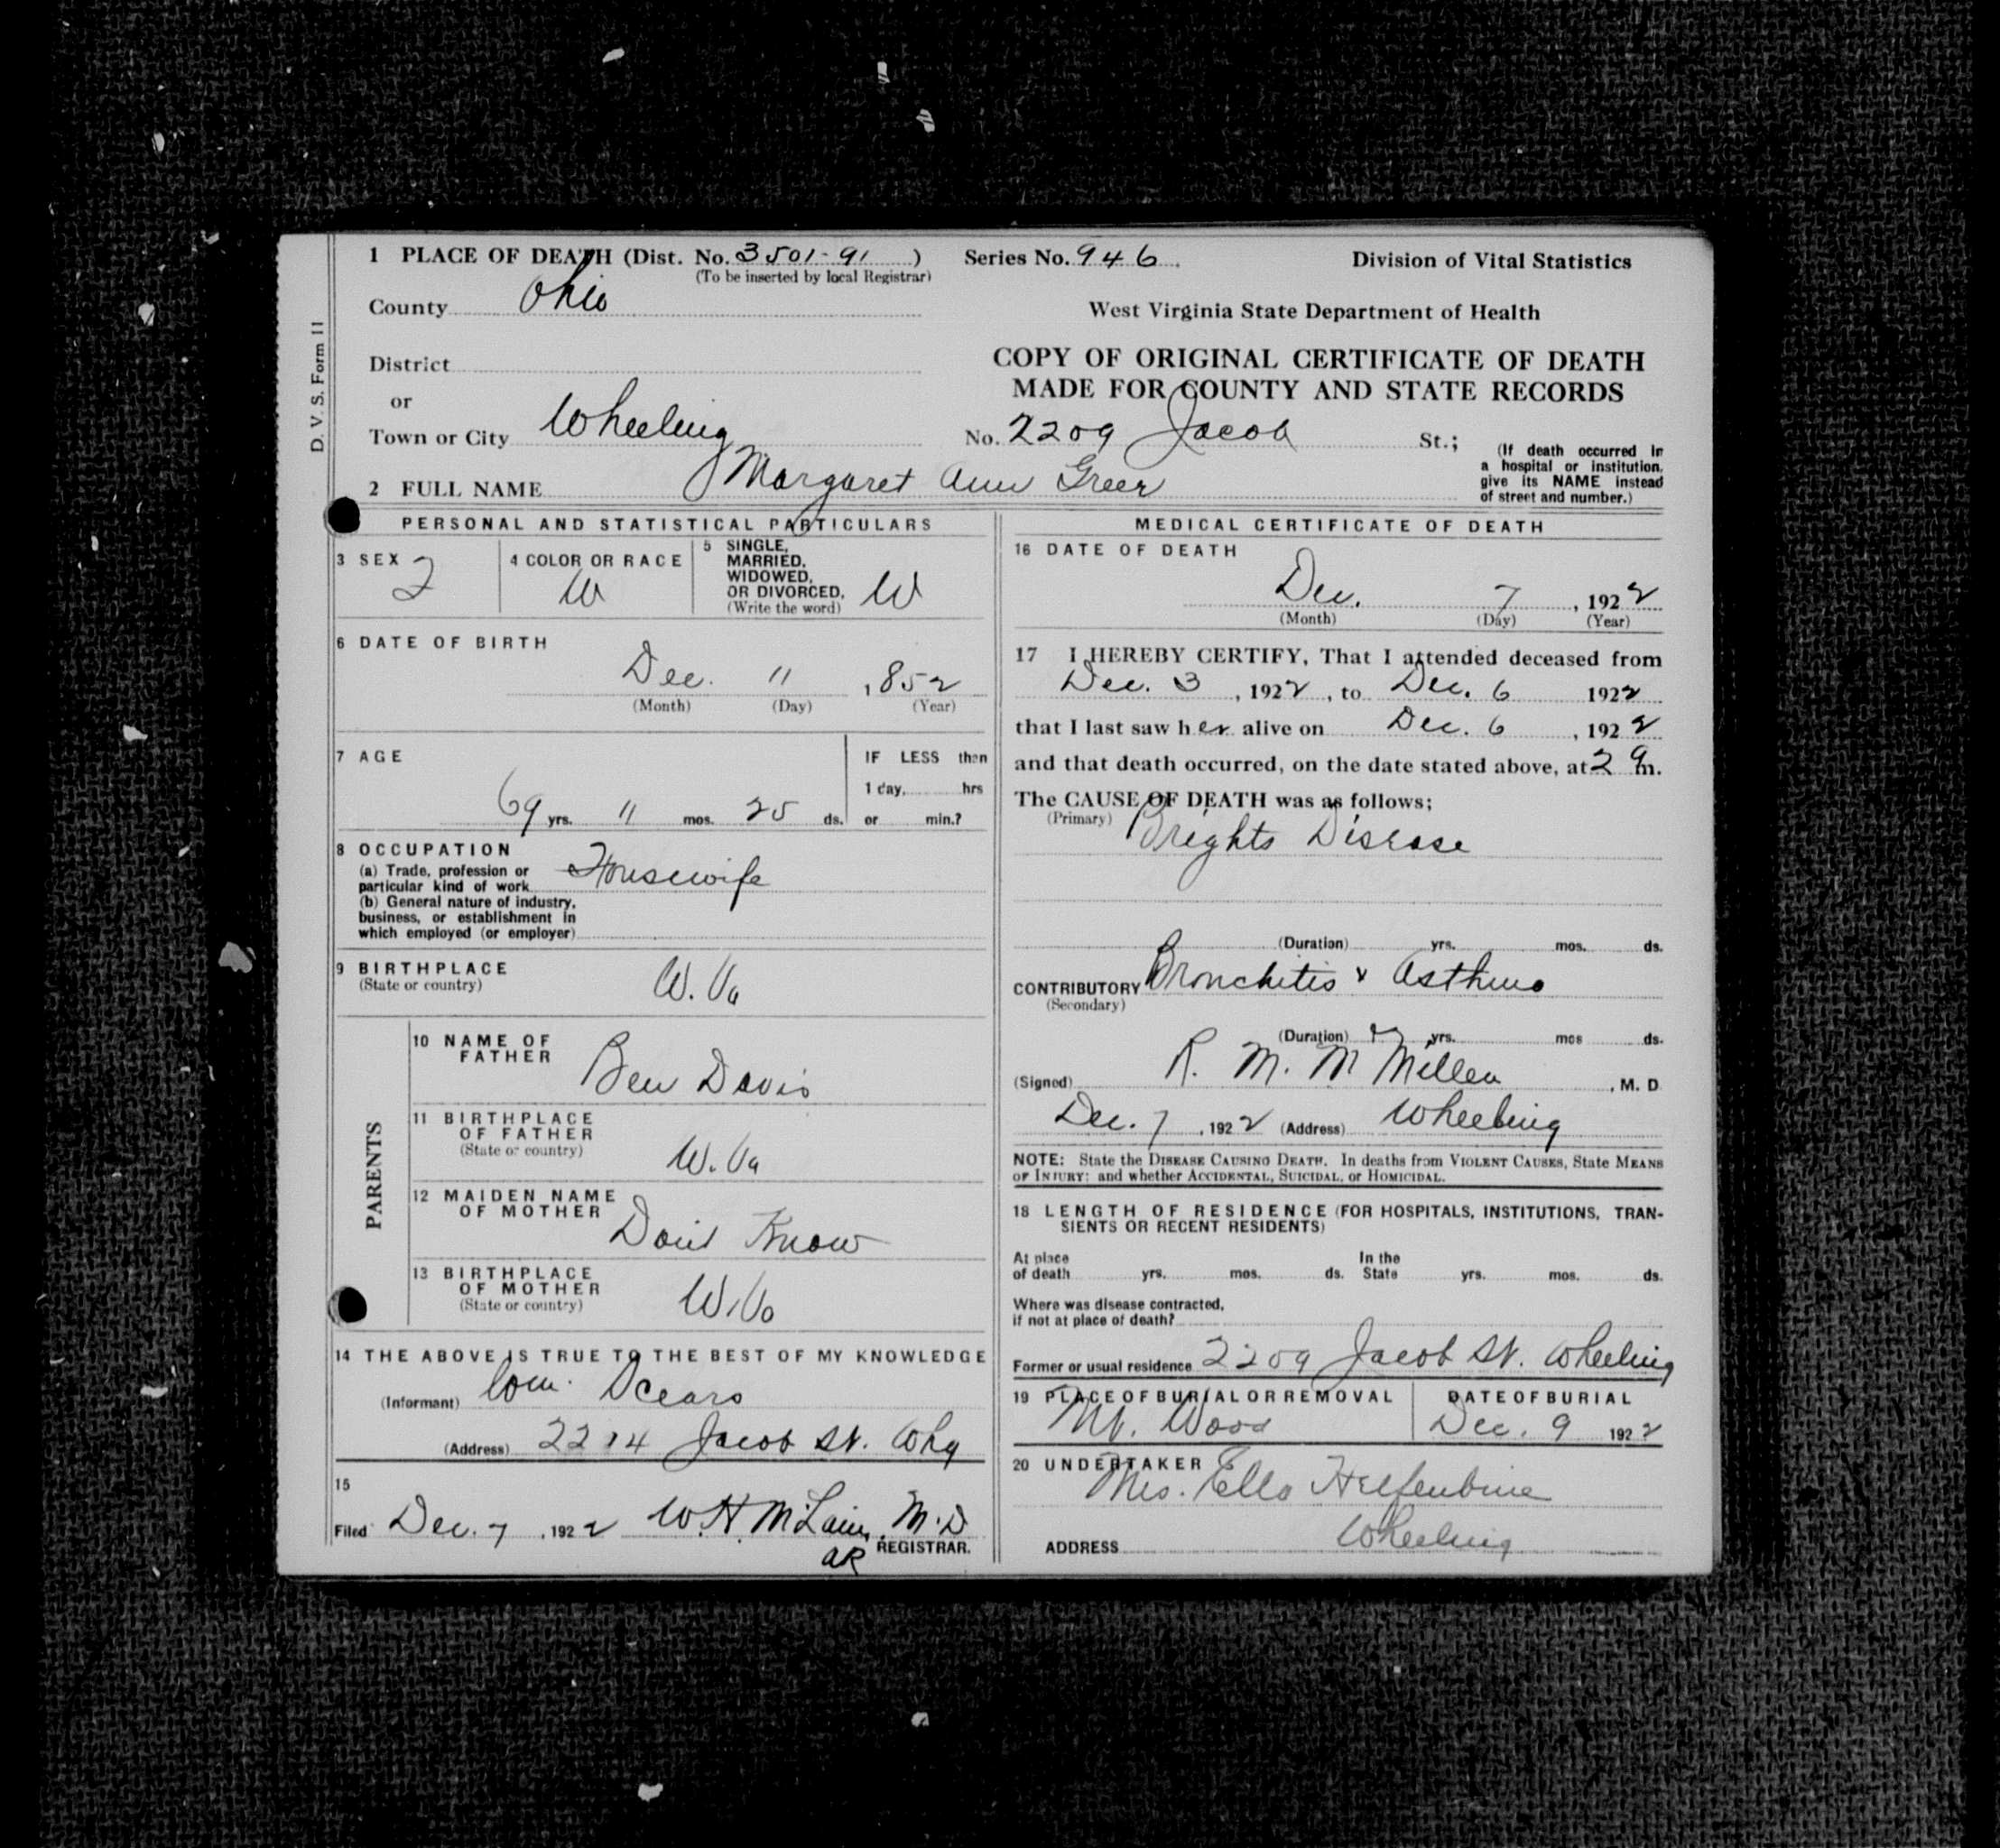 D. V. S. Form 11
1 PLACE OF DEATH (Dist. No. 3501-91 )
(To be inserted by local Registrar)
County Ohio
District
or
Town or City Wheeling
Series No. 946
Division of Vital Statistics
West Virginia State Department of Health
COPY OF ORIGINAL CERTIFICATE OF DEATH
MADE FOR COUNTY AND STATE RECORDS
No. 2209 Jacob St.;
(If death occurred in
a hospital or institution,
give its NAME instead
of street and number.)
2 FULL NAME Margaret Ann Greer
PERSONAL AND STATISTICAL PARTICULARS
3 SEX F
4 COLOR OR RACE W
5 SINGLE,
MARRIED,
WIDOWED,
OR DIVORCED,
(Write the word) W
6 DATE OF BIRTH
Dec. 11 1852
(Month) (Day) (Year)
7 AGE
69 yrs. 11 mos. 25 ds.
IF LESS than
1 day, hrs
or min.?
8 OCCUPATION
(a) Trade, profession or
particular kind of work Housewife
(b) General nature of industry,
business, or establishment in
which employed (or employer)
9 BIRTHPLACE
(State or country) W. Va
PARENTS
10 NAME OF
FATHER Ben Davis
11 BIRTHPLACE
OF FATHER
(State or country) W. Va
12 MAIDEN NAME
OF MOTHER Dont Know
13 BIRTHPLACE
OF MOTHER
(State or country) W. Va
14 THE ABOVE IS TRUE TO THE BEST OF MY KNOWLEDGE
(Informant)
(Address) 2214 Jacob St. Whg
15
Filed Dec. 7, 1922 W H McLain, M.D
REGISTRAR.
aR
MEDICAL CERTIFICATE OF DEATH
16 DATE OF DEATH
Dec. 7, 1922
(Month) (Day) (Year)
17 I HEREBY CERTIFY, That I attended deceased from
Dec. 3, 1922, to Dec. 6 1922
that I last saw her alive on Dec. 6, 1922
and that death occurred, on the date stated above, at 2 a m.
The CAUSE OF DEATH was as follows;
(Primary) Brights Disease
(Duration) yrs. mos. ds.
CONTRIBUTORY Bronchitis & Asthma
(Secondary)
(Duration) yrs. mos ds.
(Signed) R. M. M Millen, M. D
Dec. 7, 1922 (Address) Wheeling
NOTE: State the DISEASE CAUSING DEATH. In deaths from VIOLENT CAUSES, State MEANS
OF INJURY; and whether ACCIDENTAL, SUICIDAL, or HOMICIDAL.
18 LENGTH OF RESIDENCE (FOR HOSPITALS, INSTITUTIONS, TRAN-
SIENTS OR RECENT RESIDENTS)
At place In the
of death yrs. mos. ds. State yrs. mos. ds.
Where was disease contracted,
if not at place of death?
Former or usual residence 2209 Jacob St. Wheeling
19 PLACE OF BURIAL OR REMOVAL DATE OF BURIAL
Mt. Wood Dec. 9 1922
20 UNDERTAKER
Mrs. Ella Helfenbine
ADDRESS Wheeling